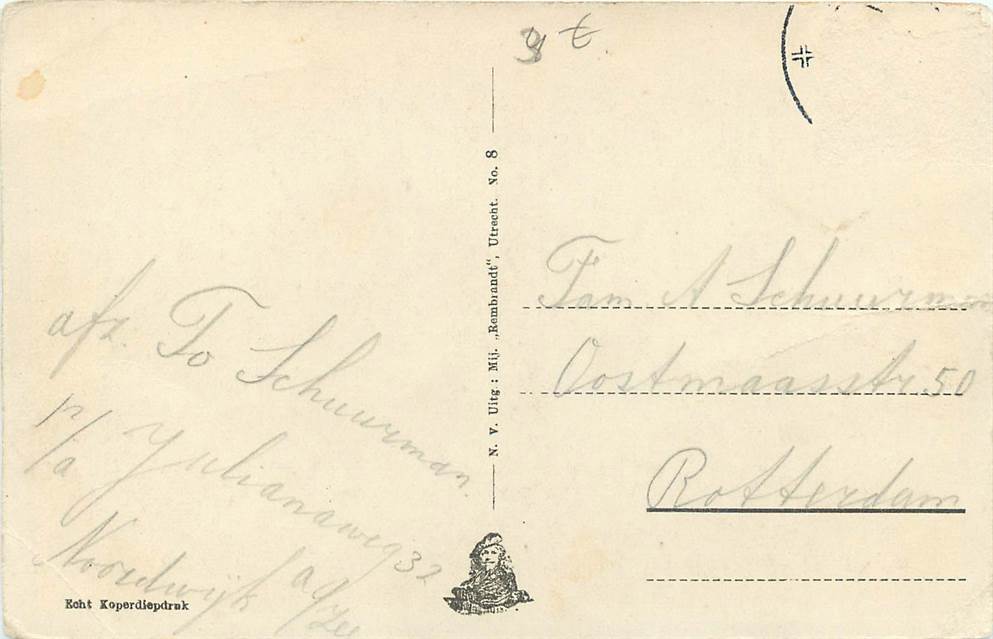 afz. To Schuurman.
p/a Julianaweg 32
Noordwijk a/zee
Echt Koperdiepdruk
N. V. Uitg: Mij. „Rembrandt“, Utrecht. No. 8
Fam A Schuurman
Oostmaasstr 50
Rotterdam